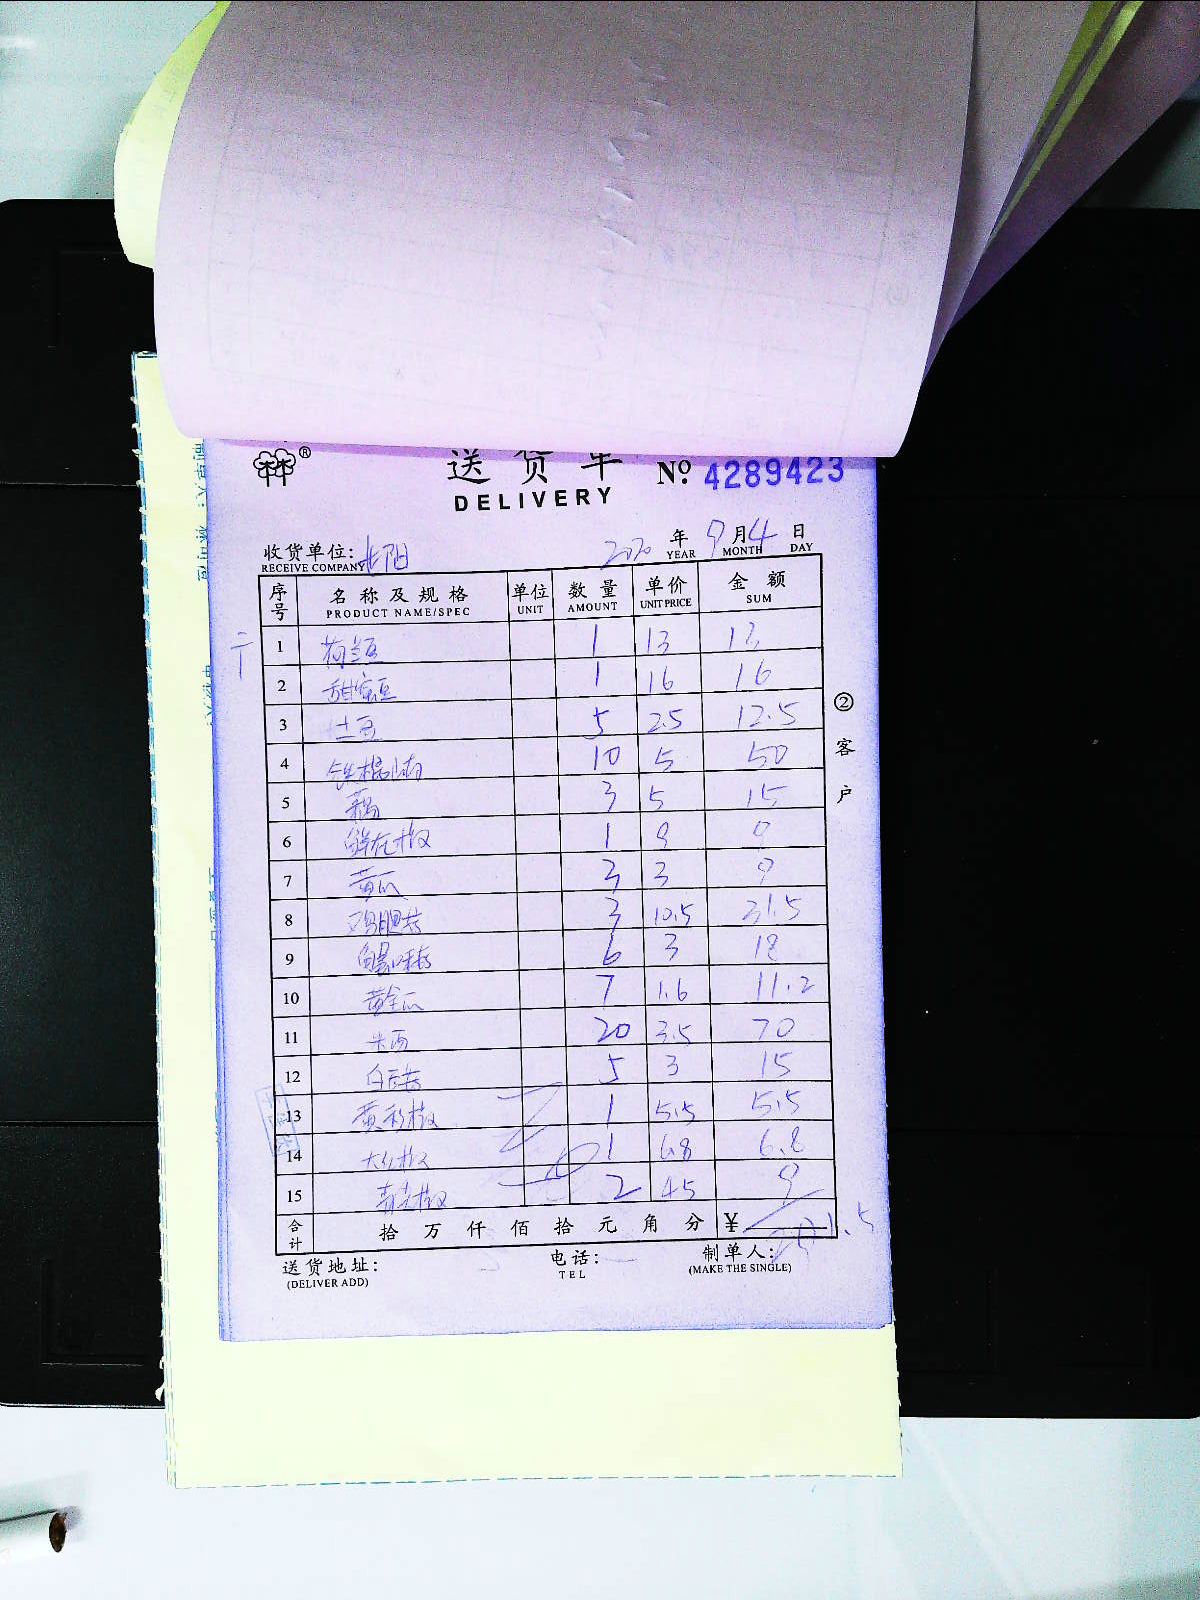 送货单 № 4289423
DELIVERY
收货单位: 2020 年 9 月 4 日
RECEIVE COMPANY YEAR MONTH DAY
序号 名称及规格 单位 数量 单价 金额
PRODUCT NAME/SPEC UNIT AMOUNT UNIT PRICE SUM
1 荷兰豆 1 13 13
2 甜蜜豆 1 16 16
3 土豆 5 2.5 12.5
4 铁棍山药 10 5 50
5 3 5 15
6 鲜花椒 1 9 9
7 黄瓜 3 3 9
8 鸡腿菇 3 10.5 31.5
9 蟹味菇 6 3 18
10 黄金瓜 7 1.6 11.2
11 20 3.5 70
12 白玉菇 5 3 15
13 黄彩椒 1 5.5 5.5
14 大红椒 1 6.8 6.8
15 青尖椒 2 4.5 9
合计 拾 万 仟 佰 拾 元 角 分 ¥
送货地址: 电话: 制单人:
(DELIVER ADD) TEL (MAKE THE SINGLE)
② 客户